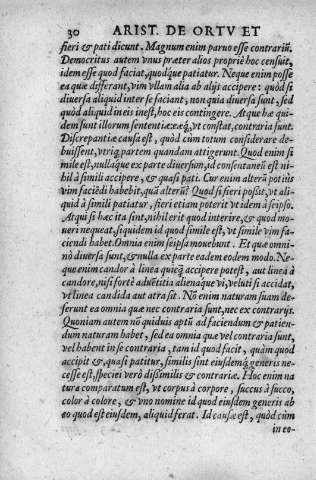 30 ARIST. DE ORTV ET
fieri & pati dicunt. Magnum enim paruo esse contrariũ.
Democritus autem vnus præter alios propriè hoc censuit,
idem esse quod faciat, quodque patiatur. Neque enim posse
ea quæ differant, vim vllam alia ab alijs accipere: quòd si
diuersa aliquid inter se faciant, non quia diuersa sunt, sed
quòd aliquid in eis inest, hoc eis contingere. Atque hæ qui-
dem sunt illorum sententiæ: eæq́, vt constat, contraria sunt.
Discrepantiæ causa est, quòd cùm totum considerare de-
buissent, vtriq; partem quandam attigerunt. Quod enim si
mile est, nullaq̃ue ex parte diuersum, id consentaneũ est ni-
hil à simili accipere, & quasi pati. Cur enim alterũ potiùs
vim faciẽdi habebit, quã alterũ? Quod si fieri possit, vt ali-
quid à simili patiatur, fieri etiam poterit vt idem à seipso.
Atqui si hæc ita sint, nihil erit quod interire, & quod mo-
ueri nequeat, siquidem id quod simile est, vt simile vim fa-
ciendi habet. Omnia enim seipsa mouebunt. Et quæ omni-
nò diuersa sunt, & nulla ex parte eadem eodem modo. Ne-
que enim candor à linea quicq̃ accipere potest, aut linea à
candore, nisi fortè aduẽtitia alienaque vi, veluti si accidat,
vt linea candida aut atra sit. Nõ enim naturam suam de-
serunt ea omnia quæ nec contraria sunt, nec ex contrarijs.
Quoniam autem nõ quiduis aptũ ad faciendum & patien-
dum naturam habet, sed ea omnia quæ vel contraria sunt,
vel habent in se contraria, tam id quod facit, quàm quod
accipit & quasi patitur, similis sint eiusdemq́; generis ne-
cesse est, speciei verò dissimilis & contrariæ. Hoc enim na
tura comparatum est, vt corpus à corpore, succus à succo,
color à colore, & vno nomine id quod eiusdem generis ab
eo quod est eiusdem, aliquid ferat. Id causæ est, quòd cùm
in eo-